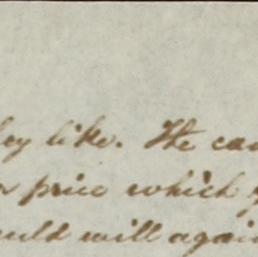 ey like. He can
price which
ould will again